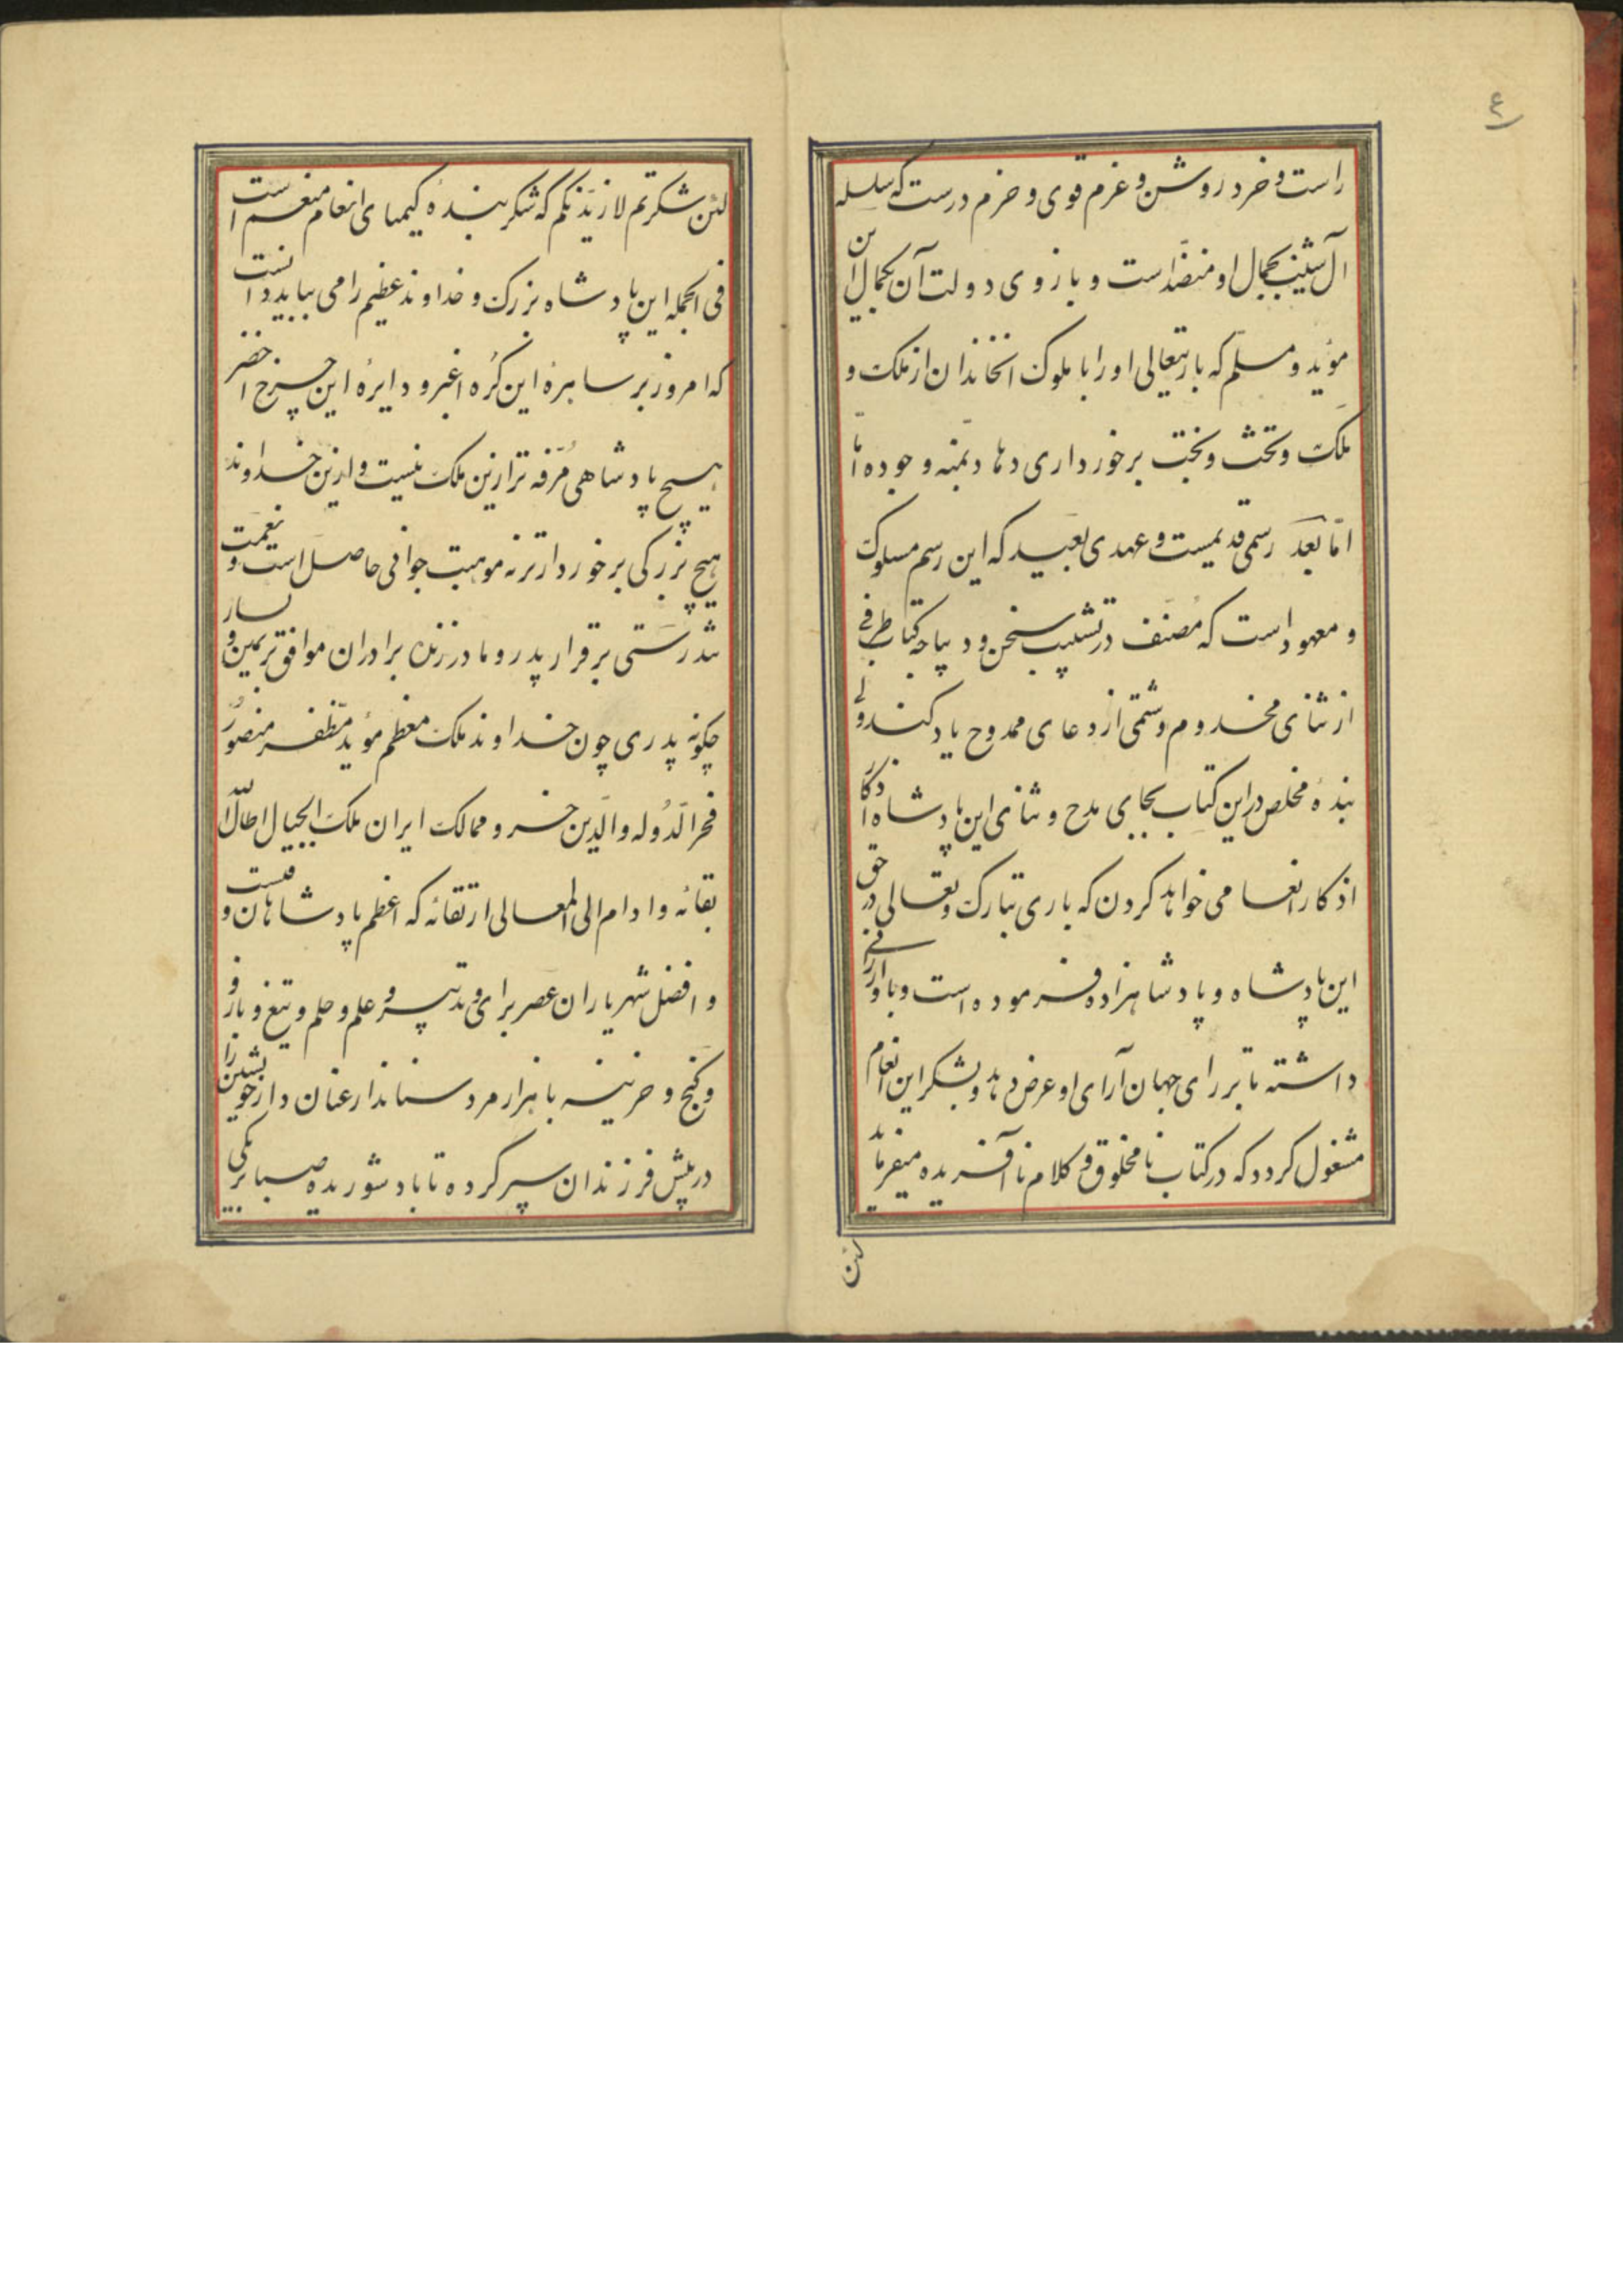 ۴
راست و خرد روشن و عزم قوی و حزم درست که سلسله
آل شنسب بجمال او منضد است و بازوی دولت آن بکمال این
مؤید و مسلم که باریتعالی او را با ملوک آنخاندان از ملک و
ملک و تخت و بخت برخورداری دهاد بمنه وجوده اما
اما بعد رسمی قدیمست و عهدی بعید که این رسم مسلوک
و معهود است که مصنف در تشبیب سخن و دیباجه کتاب طرفی
از ثنای مخدوم و شمتی از دعای ممدوح یاد کند ولی
بنده مخلص در این کتاب بجای مدح و ثنای این پادشاه اذکار
اذکار انعامی خواهد کردن که باری تبارک و تعالی در حق
این پادشاه و پادشاهزاده فرموده است و باو ارزانی
داشته تا بر رای جهان آرای او عرض دهد و بشکر این انعام
مشغول کردد که در کتاب نامخلوق و کلام ناآفریده میفرماید
لئن
لئن شکرتم لازیدنکم که شکر بنده کیمیای انعام منعم است
فی الجمله این پادشاه بزرک و خداوند عظیم را می بباید دانست
که امروز بر ساهرهٔ این کره اغبر و دایرهٔ این چرخ اخضر
هیچ پادشاهی مرفه تر ازین ملک نیست و ازین خداوند
هیچ بزرکی برخوردارتر نه موهبت جوانی حاصل است و نعمت
تندرستی برقرار پدر و مادر زنده برادران موافق بر یمین و یسار
چکونه پدری چون خداوند ملک معظم مؤید مظفر منصور
فخر الدوله والدین خسرو ممالک ایران ملک الجبال اطال الله
بقائه و ادام الی المعالی ارتقائه که اعظم پادشاهان وقتست
و افضل شهریاران عصر برای و تدبیر و علم و حلم و تیغ و بازو
و کنج و خزینه با هزار مرد سناندار عنان دار خویشتن را
در پیش فرزندان سپر کرده تا باد شوریده صبا بر یکی